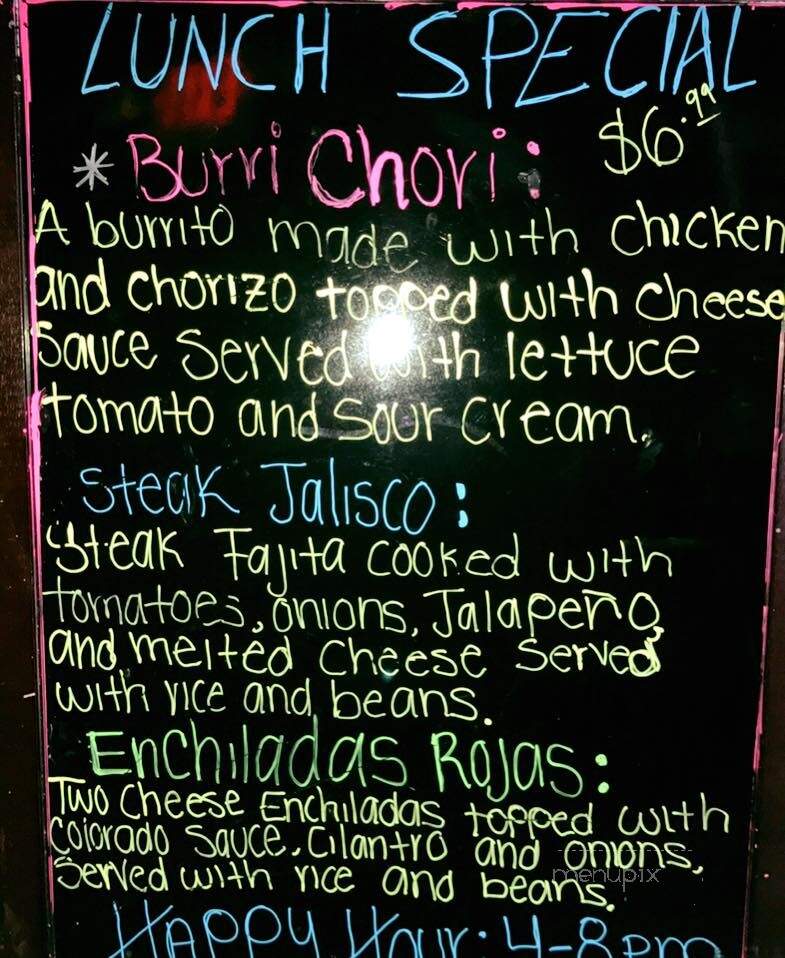 LUNCH SPECIAL
$6.99
* Burri Chori:
A burrito made with chicken
and chorizo topped with cheese
Sauce Served with lettuce
tomato and Sour Cream.
Steak Jalisco:
Steak Fajita cooked with
tomatoes, onions, Jalapeño,
and melted Cheese Served
with rice and beans.
Enchiladas Rojas:
Two Cheese Enchiladas topped with
Colorado Sauce, Cilantro and onions,
Served with rice and beans.
menupix
Happy Hour: 4-8pm